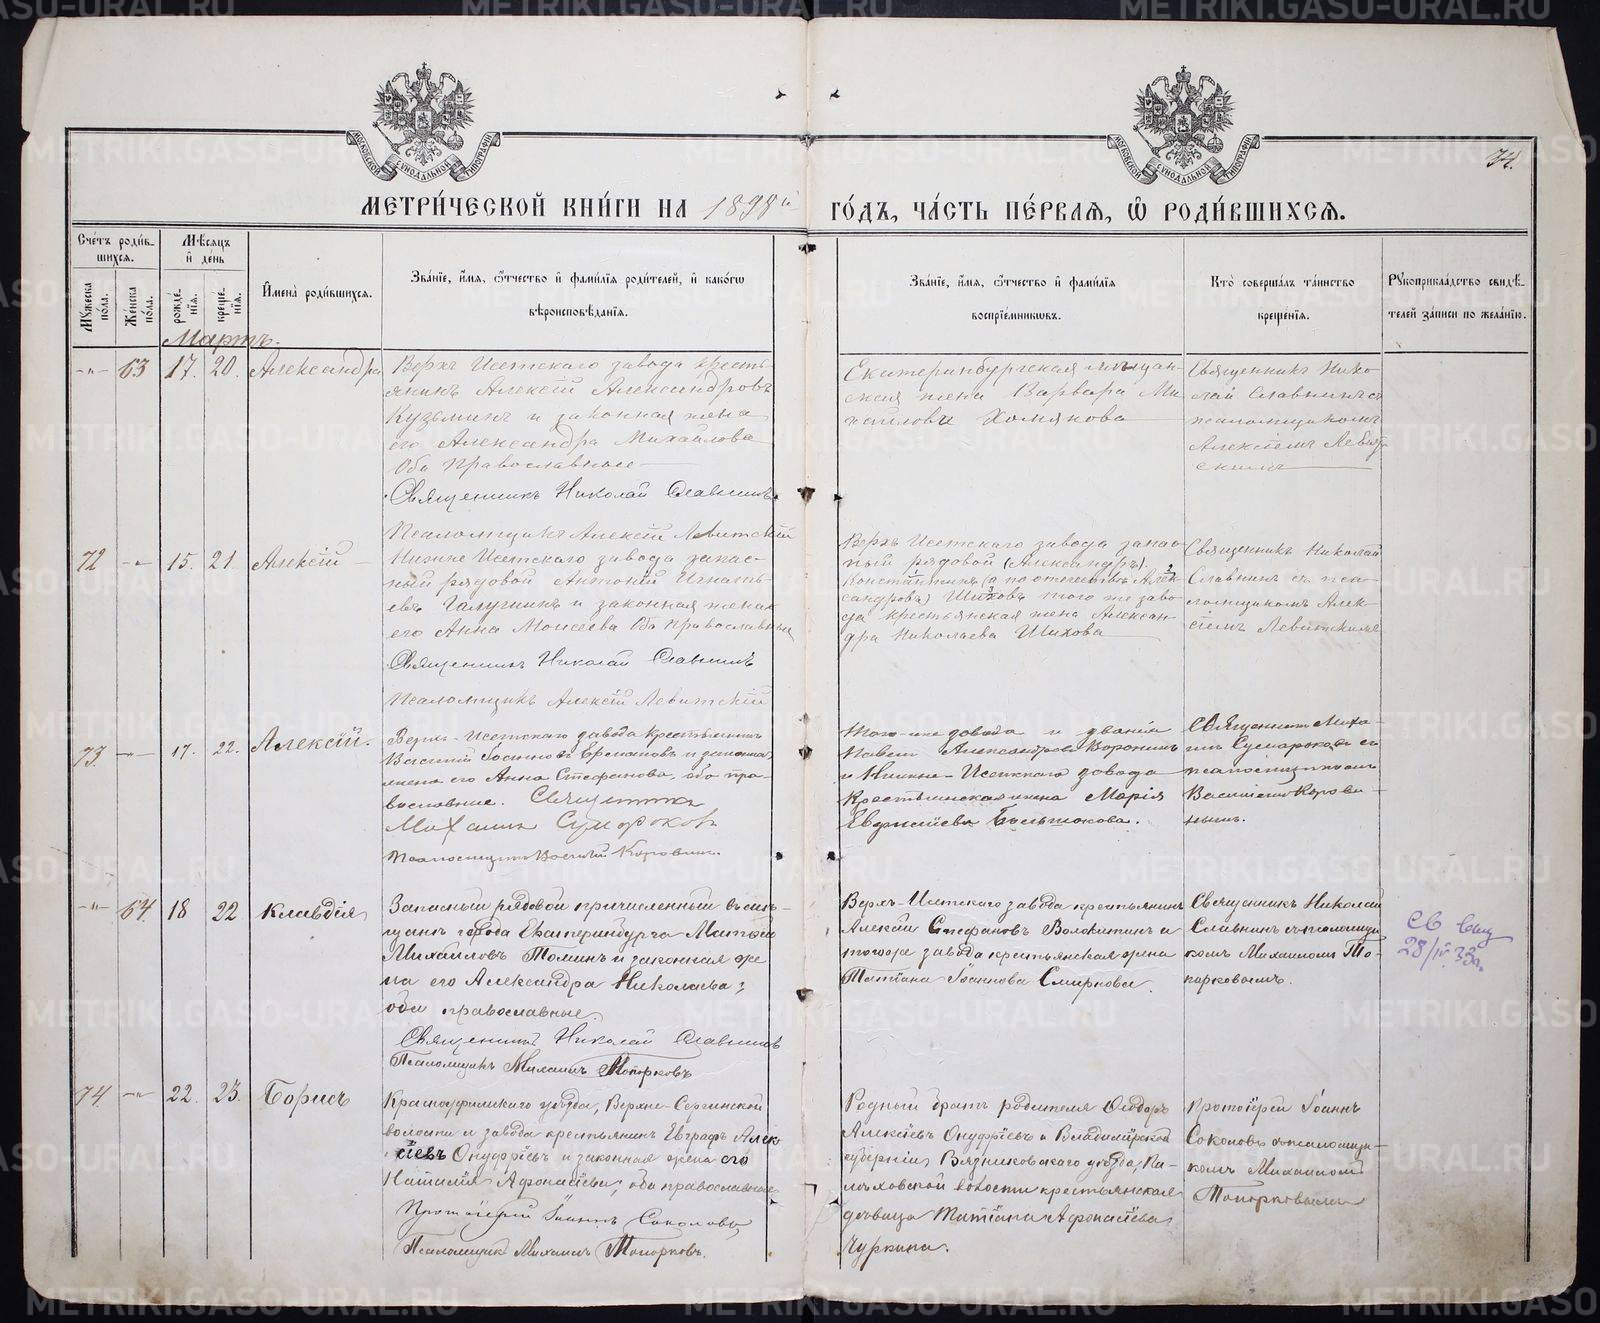 34.
МЕТРИ́ЧЕСКОЙ КНИ́ГИ НА 1898й ГО́ДЪ, ЧА́СТЬ ПЕ́РВАѦ, Ѿ РОДИ́ВШИХСѦ.
Сче́тъ роди́в-
шихсѧ.
Мѣ́сѧцъ
и҆ де́нь
Му́жеска
по́ла.
Же́нска
по́ла.
рожде́-
нїѧ.
креще́-
нїѧ.
И҆мена̀ роди́вшихсѧ.
Зва́нїе, и҆́мѧ, ѻ҆́тчество и҆ фами́лїѧ роди́телей, и҆ како́гѡ
вѣроисповѣ́данїѧ.
Зва́нїе, и҆́мѧ, ѻ҆́тчество и҆ фами́лїѧ
воспрїе́мникѡвъ.
Кто̀ соверша́лъ та́инство
креще́нїѧ.
Рꙋкоприкла́дство свидѣ́-
телей за́писи по жела́нїю.
Мартъ.
-"- 63 17. 20. Александра
Верхъ Исетскаго завода кресть-
янинъ Алексій Александровъ
Кузьминъ и законная жена
его Александра Михайлова
Оба православные
Священникъ Николай Славнинъ
Псаломщикъ Алексій Левитскій
Екатеринбургская мѣщан-
ская жена Варвара Ми-
хайлова Хомякова
Священникъ Нико-
лай Славнинъ съ
псаломщикомъ
Алексіемъ Левит-
скимъ
72 -"- 15. 21. Алексій
Нижне Исетскаго завода запас-
ный рядовой Антоній Игнать-
евъ Галугинъ и законная жена
его Анна Моисеева Оба православные
Священникъ Николай Славнинъ
Псаломщикъ Алексій Левитскій
Верхъ Исетскаго завода запас-
ный рядовой (Александръ)
Константинъ (а по отчеству Алек-
сандровъ) Шиховъ того же заво-
да крестьянская жена Алексан-
дра Николаева Шихова
Священникъ Николай
Славнинъ съ пса-
ломщикомъ Алек-
сіемъ Левитскимъ
73. -"- 17. 22. Алексій.
Верхъ-Исетскаго завода крестьянинъ
Василій Іоанновъ Ермаковъ и законная
жена его Анна Стефанова, оба пра-
вославные. Священникъ
Михаилъ Сумароковъ
Псаломщикъ Василій Коровинъ.
Того-же завода и званія
Павелъ Александровъ Воронинъ
и Нижне-Исетскаго завода
Крестьянская жена Марія
Евдокіева Большакова.
Священникъ Миха-
илъ Сумароковъ съ
псаломщикомъ
Василіемъ Корови-
нымъ.
-"- 64. 18 22 Клавдія
Запасный рядовой причисленный въ мѣ-
щане города Екатеринбурга Матвѣй
Михайловъ Томинъ и законная же
на его Александра Николаева;
оба православные.
Священникъ Николай Славнинъ
Псаломщикъ Михаилъ Топорковъ
Верхъ-Исетскаго завода крестьянинъ
Алексій Стефановъ Волокитинъ и
тогоже завода крестьянская жена
Татіана Іоаннова Смирнова.
Священникъ Николай
Славнинъ съ псаломщи-
комъ Михаиломъ То-
порковымъ.
28/IV 33г.
74. -"- 22. 23. Борисъ
Красноуфимскаго уѣзда, Верхне-Сергинской
волости и завода крестьянинъ Евграфъ Алек
сіевъ Онуфріевъ и законная жена его
Наталія Афонасіева, оба православные
Протоіерей Іоаннъ Соколовъ
Псаломщикъ Михаилъ Топорковъ.
Родный братъ родителя Ѳеодоръ
Алексіевъ Онуфріевъ и Владимірской
губерніи, Вязниковскаго уѣзда, Па-
лѣховской волости крестьянская
дѣвица Татіана Афонасіева
Чуркина.
Протоіерей Іоаннъ
Соколовъ съ псаломщи-
комъ Михаиломъ
Топорковымъ